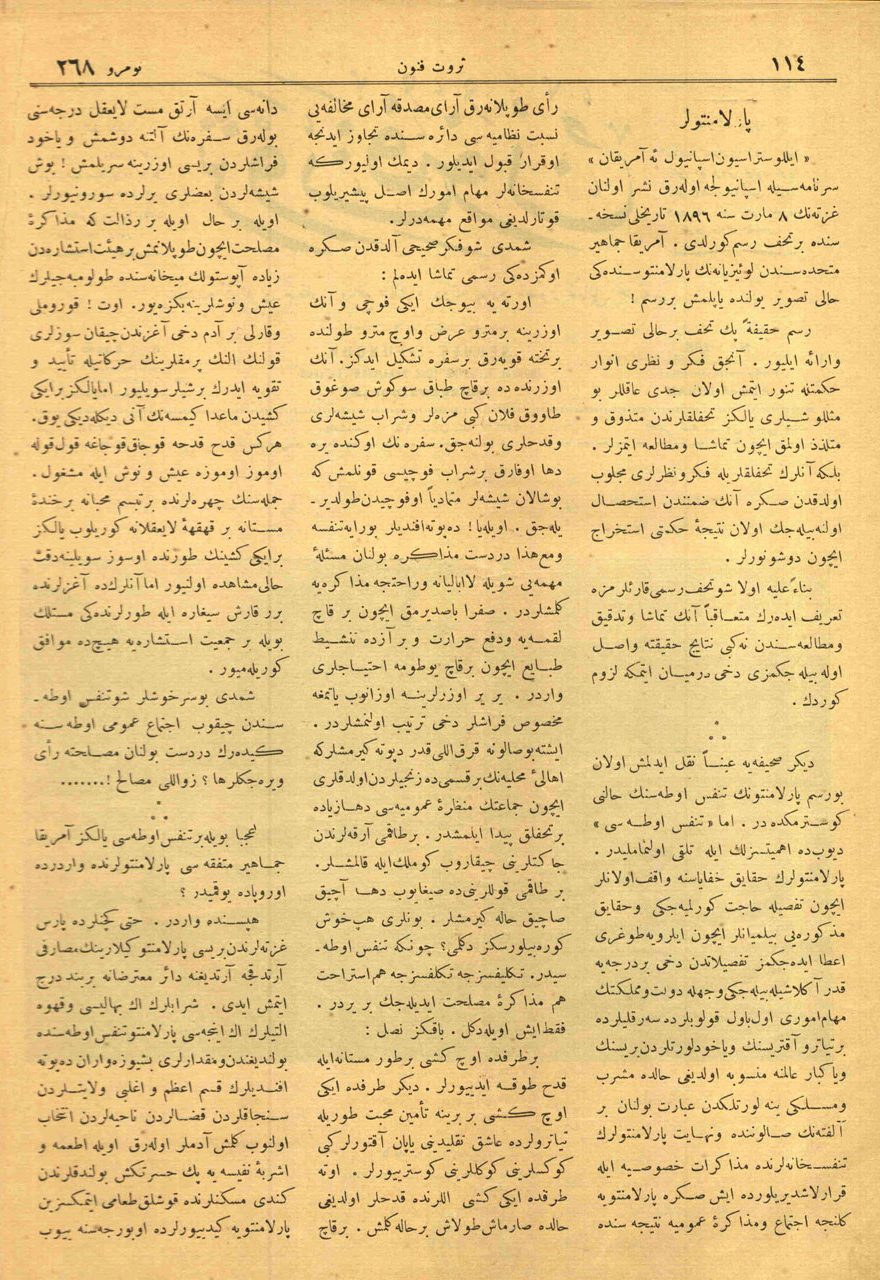 ١١٤
ثروت فنون
نومرو ٢٦٨
پارلامنتولر
« ايللوستراسيون اسپانيول ئه آمريقان »
سرنامه‌سيله اسپانيولجه اوله‌رق نشر اولنان
غزته‌نك ٨ مارت سنه ١٨٩٦ تاريخلى نسخه‌ـ
سنده برتحف رسم كورلدى . آمريقا جماهير
متحده‌سندن لوئيزيانه‌نك پارلامنتوسنده‌كى
حالى تصوير يولنده ياپلمش بررسم !
رسم حقيقةً پك تحف برحالى تصوير
وارائه ايليور . آنجق فكر و نظرى انوار
حكمتله تنور ايتمش اولان جدى عاقللر بو
مثللو شيلرى يالكز تحفلقلرندن متذوق و
متلذذ اولمق ايچون تماشا ومطالعه ايتمزلر .
بلكه آنلرك تحفلقلريله فكرونظرلرى مجلوب
اولدقدن صكره آنك ضمنندن استحصال
اولنه‌بيله‌جك اولان نتيجهٔ حكمتى استخراج
ايچون دوشونورلر .
بناءً عليه اولا شوتحف رسمى قارئلرمزه
تعريف ايده‌رك متعاقباً آنك تماشا وتدقيق
ومطالعه‌سندن نه‌كبى نتايج حقيقته واصل
اوله‌بيله‌جكمزى دخى درميان ايتمكه لزوم
كوردك .
ديكر صحيفه‌يه عيناً نقل ايدلمش اولان
بورسم پارلامنتونك تنفس اوطه‌سنك حالنى
كوسترمكده‌در . اما « تنفس اوطه‌سى »
ديوب‌ده اهميتسزلك ايله تلقى اولنماملیدر .
پارلامنتولرك حقايق خفاياسنه واقف‌اولانلر
ايچون تفصيله حاجت كورلميه‌جكى وحقايق
مذكوره‌يى بيلميانلر ايچون ايلرويه‌طوغرى
اعطا ايده‌جكمز تفصيلاتدن دخى بردرجه‌يه
قدر آكلاشيله‌بيله‌جكى وجهله دولت‌ومملكتك
مهام‌امورى اول‌باول قولوبلرده سه‌رقليلرده
برتياترو آقتريسنك وياخودلورتلردن‌بريسنك
وياكبار عالمنه منسوبه اولديغى حالده مشرب
ومسلكى ينه لورتلكدن عبارت بولنان بر
آلفته‌نك صالوننده ونهايت پارلامنتولرك
تنفسخانه‌لرنده مذاكرات خصوصيه ايله
قرارلاشديريلورده ايش صكره پارلامنتويه
كلنجه اجتماع ومذاكرهٔ عموميه نتيجه‌سنده
رأى طوپلانه‌رق آراى‌مصدقه آراى مخالفه‌يى
نسبت نظاميه‌سى دائره‌سنده تجاوز ايدنجه
اوقرار قبول ايديلور . ديمك اوليوركه
تنفسخانه‌لر مهام امورك اصل پيشيريلوب
قوتارلديغى مواقع مهمه‌درلر.
شمدى شوفكرصحيحى آلدقدن صكره
اوكمزده‌كى رسمى تماشا ايده‌لم :
اورته يه بيوجك ايكى فوچى و آنك
اوزرينه برمترو عرض واوچ مترو طولنده
برتخته قويه‌رق برسفره تشكيل ايدكز. آنك
اوزرنده ده برقاچ طباق سوكوش صوغوق
طاووق فلان كبى مزه‌لر وشراب شيشه‌لرى
وقدحلرى بولنه‌جق. سفره‌نك اوكنده يره
دها اوفارق برشراب فوچيسى قونلمش كه
بوشالان شيشه‌لر متمادياً اوفوچيدن‌طولديرـ
يله‌جق . اويله‌يا! ده‌پوته‌افنديلر بورايه‌تنفسه
ومع‌هذا دردست مذاكره بولنان مسئلهٔ
مهمه‌يى شويله لاابالیانه وراحتجه مذاكره‌يه
كلمشلردر . صفرا باصديرمق ايچون بر قاچ
لقمه‌يه ودفع حرارت وبرآزده تنشيط
طبايع ايچون برقاچ يوطومه احتياجلرى
واردر . ير ير اوزرلرينه اوزانوب ياتمغه
مخصوص فراشلر دخى ترتيب اولنمشلردر .
ايشته‌بوصالونه قرق‌اللى‌قدر دپوته كيرمشلركه
اهالئ محليه‌نك‌برقسمى‌ده زنجيلردن‌اولدقلرى
ايچون جماعتك منظرهٔ عموميه‌سى دهازياده
برتحفلق پيدا ايلمشدر . برطاقمى آرقه‌لرندن
جاكتلرينى چيقاروب كوملك‌ايله قالمشلر.
بر طاقمى قوللرينى‌ده صيغايوب دها آچيق
صاچيق حاله كيرمشلر . بونلرى هپ‌خوش
كوره‌بيلورسكز دكلمى؟ چونكه تنفس اوطه‌ـ
سيدر. تكليفسزجه تكلفسزجه هم استراحت
هم مذاكرهٔ مصلحت ايديله‌جك بر يردر .
فقط‌ايش اويله‌دكل . باقكز نصل :
برطرفده اوچ كشى برطور مستانه‌ايله
قدح طوقه ايدييورلر . ديكر طرفده ايكى
اوچ كشى بربرينه تأمين محبت طوريله
تياترولرده عاشق تقليدينى ياپان آقتورلركبى
كوكسلرينى كوكللرينى كوسترييورلر . اوته
طرفده ايكى كشى اللرنده قدحلر اولديغى
حالده صارماش‌طولاش برحاله كلمش . برقاچ
دانه‌سى ايسه آرتق مست لايعقل درجه‌سنى
بوله‌رق سفره‌نك آلتنه دوشمش وياخود
فراشلردن بريسى اوزرينه سريلمش ! بوش
شيشه‌لردن بعضلرى يرلرده سورونيورلر .
اويله بر حال اويله بر رذالت كه مذاكرهٔ
مصلحت‌ايچون‌طوپلانمش‌برهيئت‌استشاره‌دن
زياده آپوستولك ميخانه‌سنده طولومبه‌جيلرك
عيش ونوشلرينه‌بكزه‌يور. اوت ! قوروملى
وقارلى بر آدم دخى آغزندن‌چيقان سوزلرى
قولنك النك پرمقلرينك حركاتيله تأييد و
تقويه ايدرك برشيلر سويليور امايالكز برايكى
كشيدن ماعدا كيمسه‌نك آنى ديكله‌ديكى يوق.
هركس قدح قدحه قوجاق‌قوجاغه قول‌قوله
اوموز اوموزه عيش و نوش ايله مشغول .
جمله‌سنك چهره‌لرنده برتبسم محبانه برخندهٔ
مستانه بر قهقههٔ لايعقلانه كوريلوب يالكز
برايكى كشينك طورنده اوسوز سويلينه‌دقت
حالى‌مشاهده اولنيور اماآنلرك‌ده آغزلرنده
برر قارش سيغاره ايله طورلرنده‌كى مستلك
بويله بر جمعيت استشاريه‌يه هيچ‌ده موافق
كوريله‌ميور .
شمدى بوسرخوشلر شوتنفس اوطه‌ـ
سندن چيقوب اجتماع عمومى اوطه‌سنه
كيده‌رك دردست بولنان مصلحته رأى
ويره‌جكلرها ؟ زواللى مصالح !.......
عجبا بويله‌برتنفس اوطه‌سى يالكز آمريقا
جماهير متفقه‌سى پارلامنتولرنده واردرده
اوروپاده يوقميدر ؟
هپسنده واردر . حتى كچنلرده پارس
غزته‌لرندن‌بريسى پارلامنتو كيلارينك‌مصارفى
آرتدقجه آرتديغنه دائر معترضانه بربند درج
ايتمش ايدى . شرابلرك اك بهاليسى وقهوه
التيلرك اك اينجه‌سى پارلامنتوتنفس اوطه‌سنده
بولنديغندن‌ومقدارلرى بشيوزه‌واران ده‌پوته
افنديلرك قسم اعظم و اغلبى ولايتلردن
سنجاقلردن قضالردن ناحيه‌لردن انتخاب
اولنوب كلمش آدملر اوله‌رق اويله اطعمه و
اشربهٔ نفيسه‌يه پك حسرتكش بولندقلرندن
كندى مسكنلرنده قوشلق‌طعامى ايتمكسزين
پارلامنتويه كيدييورلرده اوبورجه‌سنه ييوب